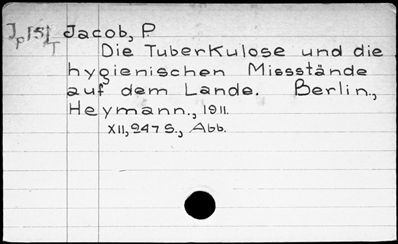 Jp [5] T Jacob, P.
Die Tuberkulose und die
hygienischen Missstände
auf dem Lande. Berlin.,
Heymann., 1911.
XII, 247 S., Abb.